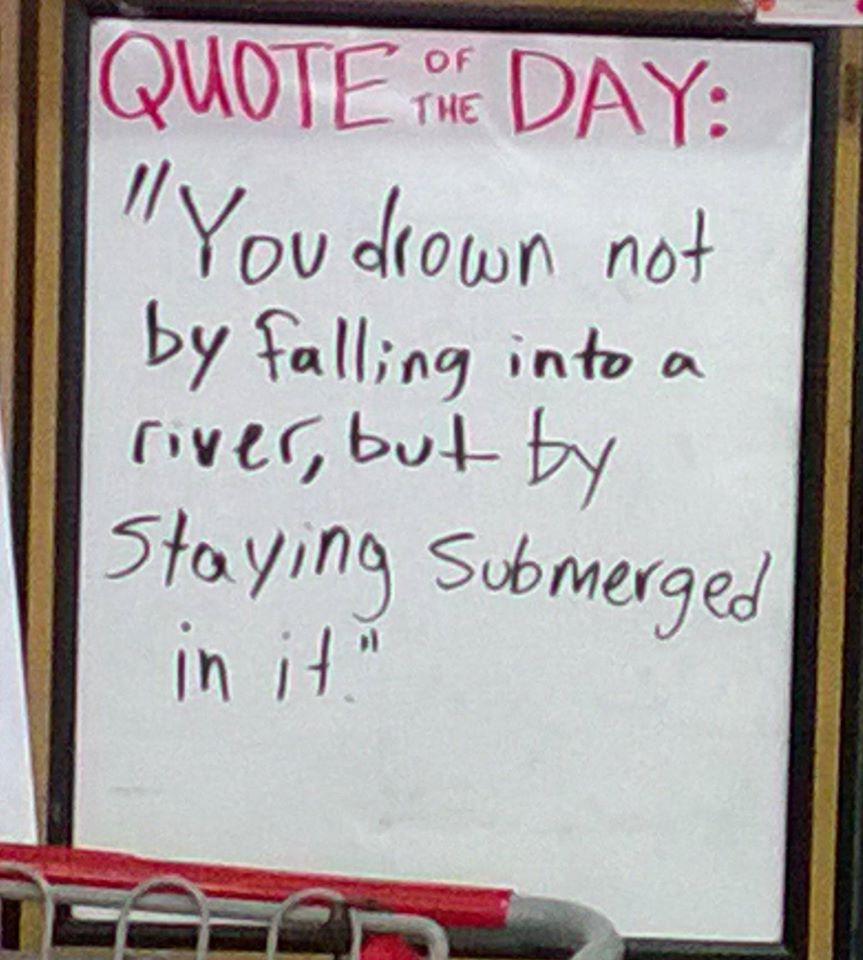 QUOTE OF THE DAY:
"You drown not
by falling into a
river, but by
Staying Submerged
in it."